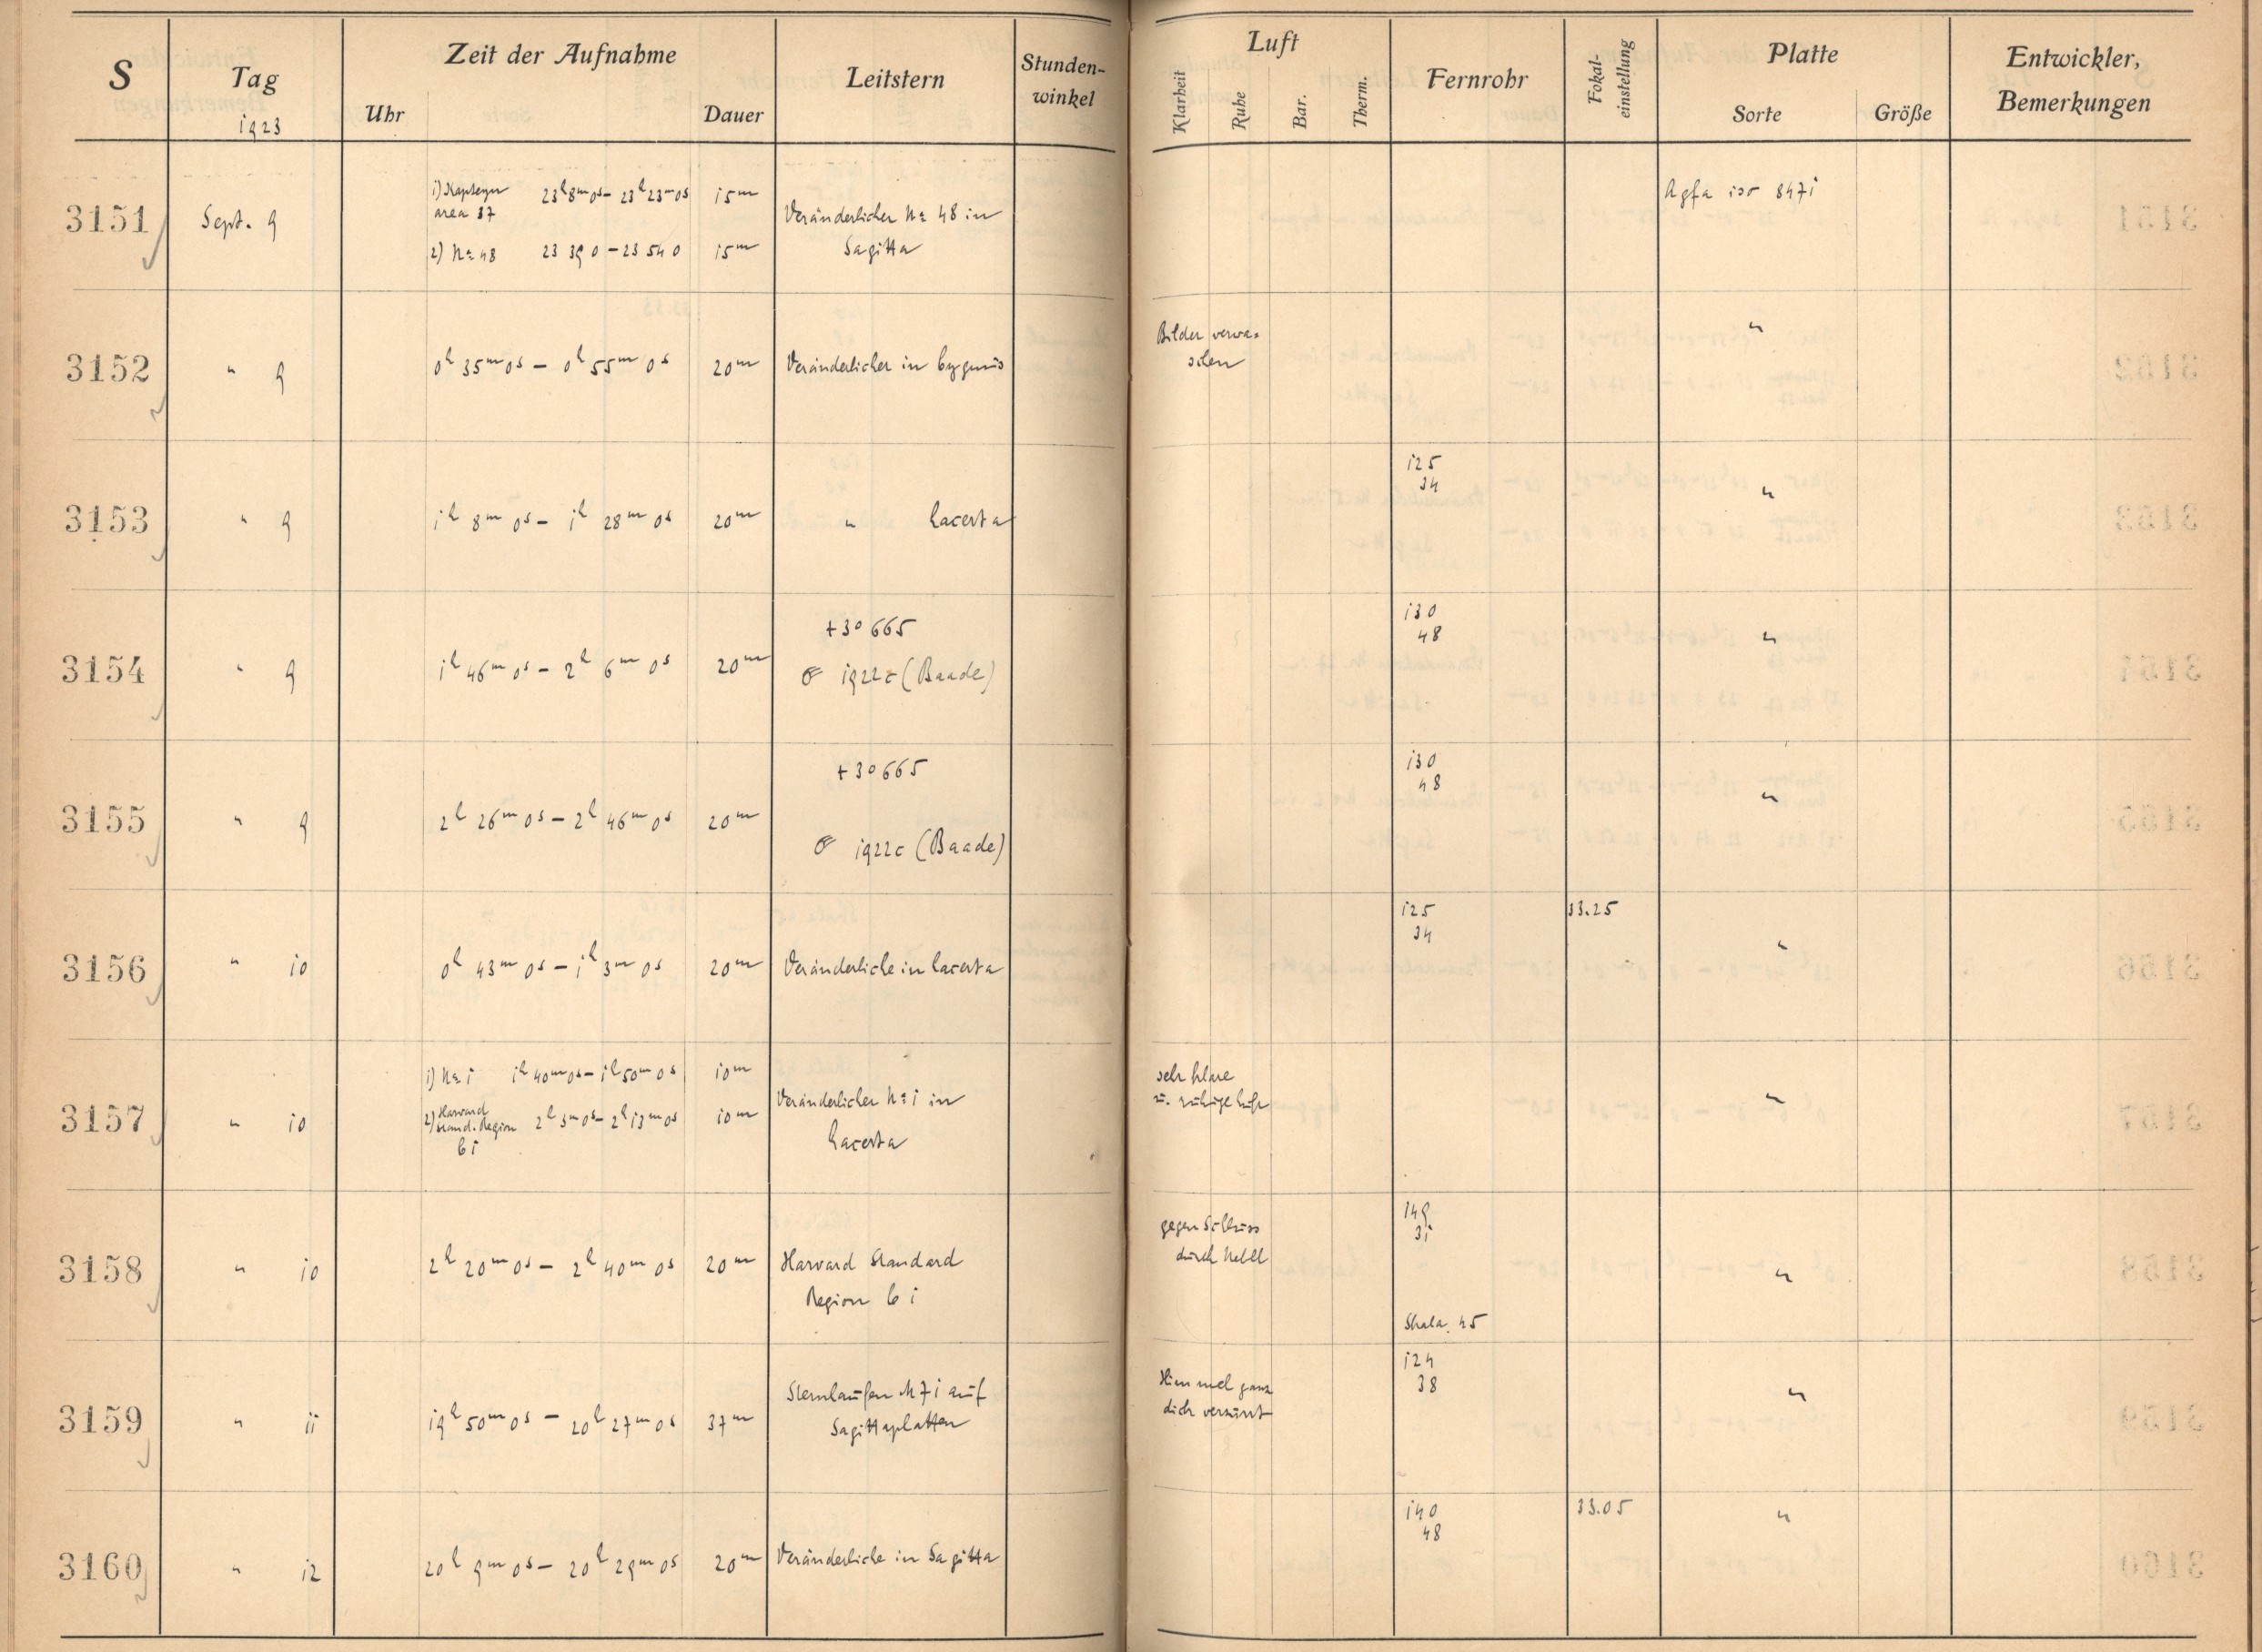 S
Tag
1923
Zeit der Aufnahme
Uhr
Dauer
Leitstern
Stunden-
winkel
Luft
Klarheit
Ruhe
Bar.
Therm.
Fernrohr
Fokal-
einstellung
Platte
Sorte
Größe
Entwickler,
Bemerkungen
3151
Sept. 9
1) Kapteyn 23h 8m 0s – 23h 23m 0s 15m
area 37
2) No 48 23 39 0 – 23 54 0 15m
Veränderlicher No 48 in
Sagitta
Agfa iso 8471
3152
" 9
0h 35m 0s – 0h 55m 0s 20m
Veränderlicher in Cygnus
Bilder verwa-
schen
"
3153
" 9
1h 8m 0s – 1h 28m 0s 20m
" Lacerta
125
34
"
3154
" 9
1h 46m 0s – 2h 6m 0s 20m
+30 665
1922c (Baade)
130
48
"
3155
" 9
2h 26m 0s – 2h 46m 0s 20m
+30 665
1922c (Baade)
130
48
"
3156
" 10
0h 43m 0s – 1h 3m 0s 20m
Veränderliche in Lacerta
125
34
33.25
"
3157
" 10
1) No 1 1h 40m 0s – 1h 50m 0s 10m
2) Harvard
Stand. Region 2h 3m 0s – 2h 13m 0s 10m
C 1
Veränderlicher No 1 in
Lacerta
sehr klare
u. ruhige Luft
"
3158
" 10
2h 20m 0s – 2h 40m 0s 20m
Harvard Standard
Region C 1
gegen Schluss
durch Nebel
149
31
Skala 45
"
3159
" 11
19h 50m 0s – 20h 27m 0s 37m
Sternhaufen M 71 auf
Sagittaplatten
Himmel ganz
dick
124
38
"
3160
" 12
20h 9m 0s – 20h 29m 0s 20m
Veränderliche in Sagitta
140
48
33.05
"